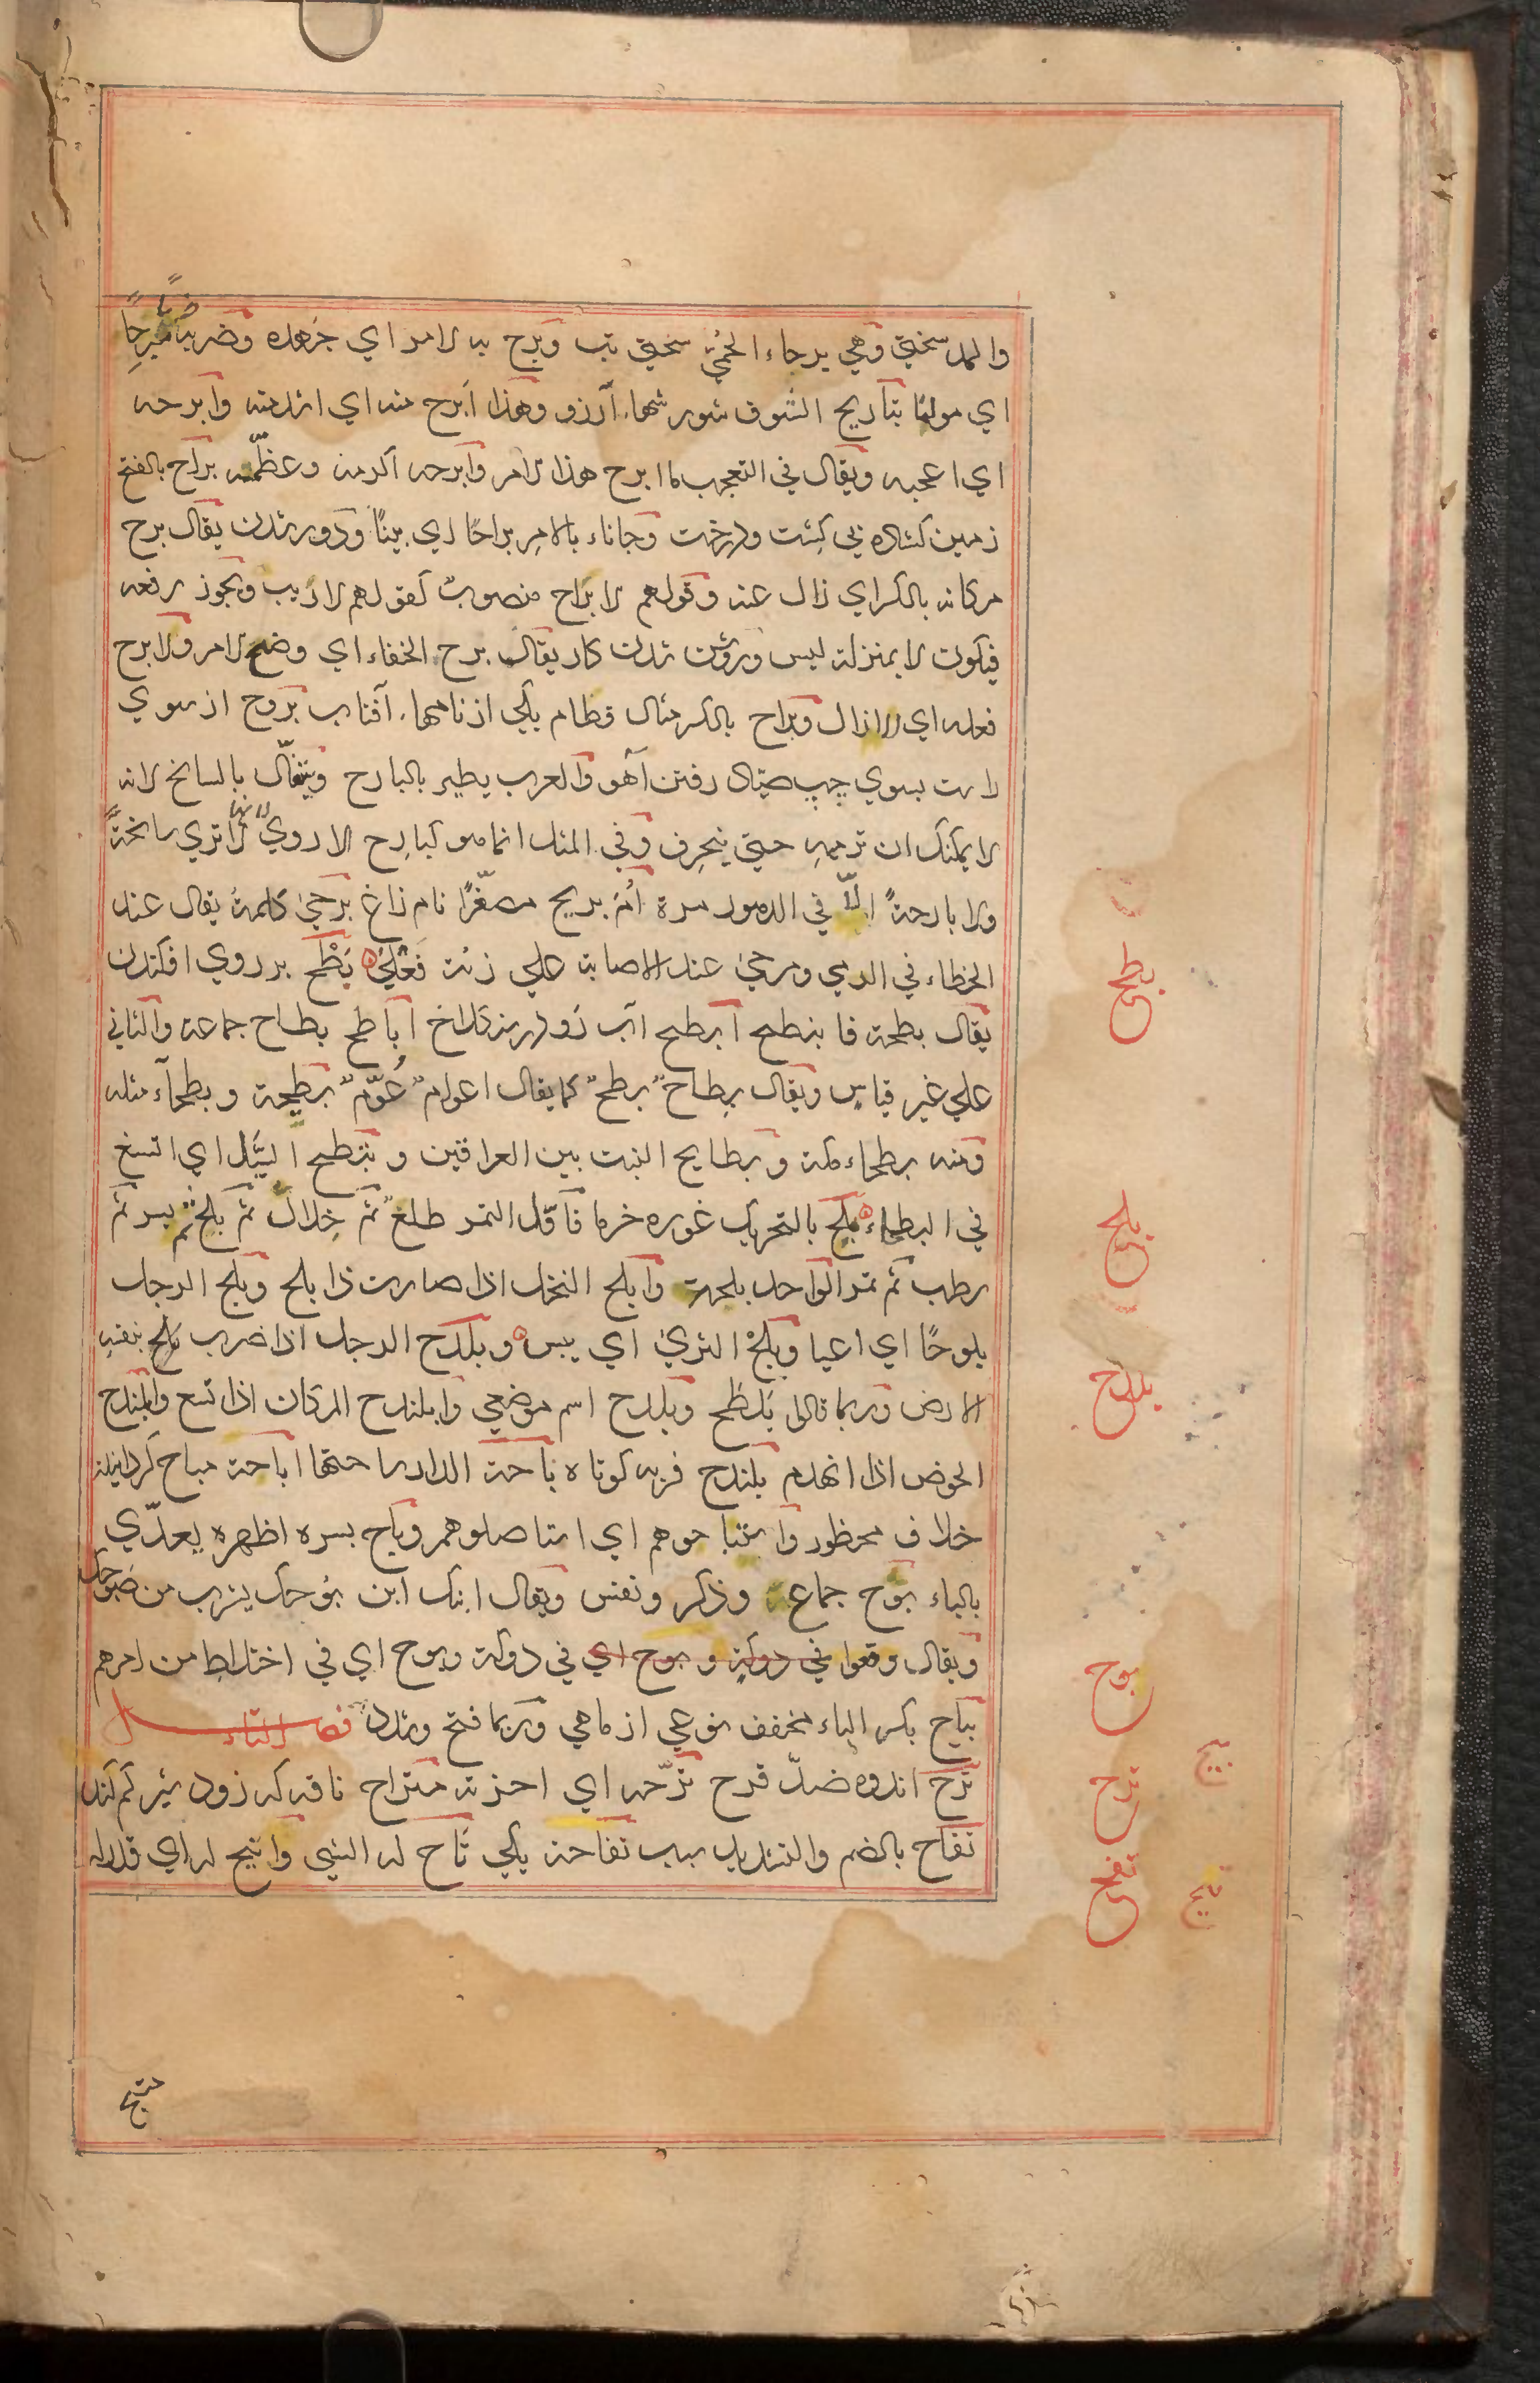 والمد سختي وهي برحاء الحمي سختي تب وبرح به الامر اي جهده وضربه ضربا مبرحا
اي مولما تباريح الشوق شورشهاء آرزو وهذا ابرح منه اي اشد منه وابرحه
اي اعجبه ويقال في التعجب ما ابرح هذا الامر وابرحه اكرمه وعظّمه براح بالفتح
زمين كشاده بي كشت ودرخت وجاناء بالامر براحًا اي بينًا ودور شدن يقال برح
مكانه بالكسر اي زال عنه وقولهم لا براح منصوب كقولهم لا ريب ويجوز رفعه
فيكون لا بمنزلة ليس وروشن شدن كار يقال برح الخفاء اي وضح الامر ولا برح
فعله اي لا زال وبراح بالكسر مثال قطام يكي از نامهاء آفتاب بروح از سوي
راست بسوي چپ صيّاد رفتن آهو والعرب يطير بالبارح ويتفأّل بالسانح لانه
لا يمكنك ان ترميه حتي ينحرف وفي المثل انما هو كبارح الاروي لانها لا تري سانحةً
ولا بارحةً الّا في الدهور مرة امّ بريح مصغّرًا نام زاغ برحي كلمة يقال عند
الخطاء في الرمي ومرحي عند الاصابة علي زنة فعلي بطح بر روي افكندن
يقال بطحه فانبطح ابطح آب رود بزنگلاخ اباطح بطاح جماعة والثاني
علي غير قياس ويقال بطاح بطح كما يقال اعوام عوّم بطيحة وبطحآء مثله
ومنه بطحاء مكة وبطايح النبت بين العراقين وتبطح السيل اي اتسع
في البطحاء بلح بالتحريك غوره خرما فاوّل التمر طلع ثم خلال ثم بلح ثم بسر ثم
رطب ثم تمر الواحد بلحة وابلح النخل اذا صارت ذا بلح وبلح الرجل
بلوحًا اي اعيا وبلح الثري اي يبس وبلدح الرجل اذا ضرب بنفسه
الارض وربما قالوا بلطح وبلدح اسم موضعي وابلندح المكان اذا اتسع وابلندح
الحوض اذا انهدم بلندح فربه كوتاه باحة الدار ساحتها اباحة مباح كردانيدن
خلاف محظور واستباحوهم اي استاصلوهم وباح بسره اظهره يعدّي
بالباء بوح جماعة وذكر ونفس ويقال ابنك ابن بوحك يشرب من صبوحك
ويقال وقعوا في دوكة وبوح اي في دوكة وبوح اي في اختلاط من امرهم
بياح بكسر الباء مخفف نوعي از ماهي وربما فتح وشدد فصل التاء
ترح اندوه ضدّ فرح ترّحه اي احزنه متراح ناقه كه زود شير كم كند
تفاح بالضم والتشديد سيب تفاحة يكي تاح له الشي واتيح له اي قدر له
بطح
بلح
بلدح
بوح
بيح
ترح
تفح
تيح